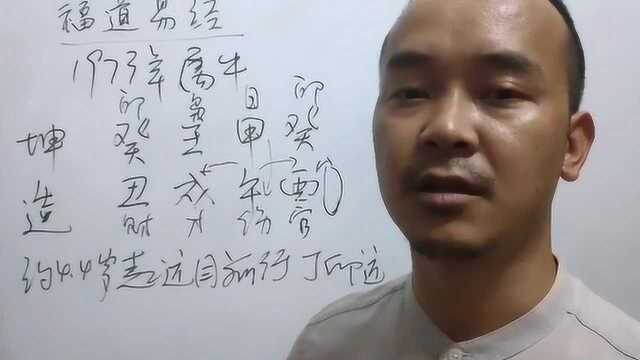 福道易经
1973年属牛
印 枭 日 印
坤 癸 壬 甲 癸
造 丑 戌 午 酉
财 才 伤 官
约4.4岁起运目前行丁卯运